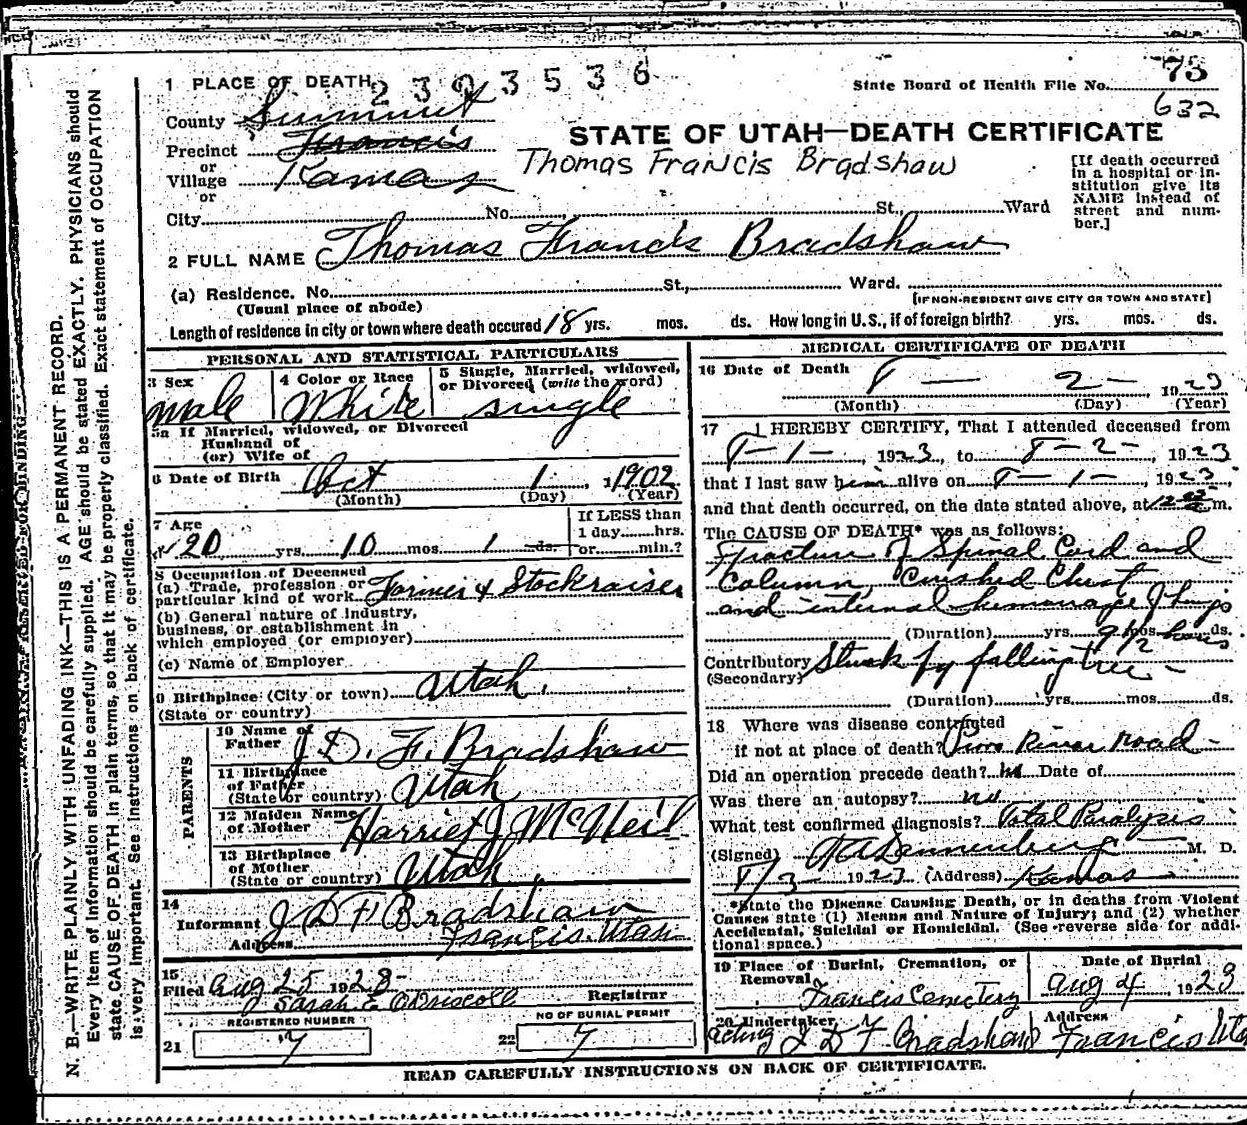 1 PLACE OF DEATH 2303536
State Board of Health File No. 73
632
County Summit
STATE OF UTAH—DEATH CERTIFICATE
Precinct Francis
or
Village Kamas
Thomas Francis Bradshaw
or
[If death occurred in a hospital or institution give its NAME instead of street and number.]
City No. St., Ward
2 FULL NAME Thomas Francis Bradshaw
(a) Residence. No. St., Ward.
(Usual place of abode) [IF NON-RESIDENT GIVE CITY OR TOWN AND STATE]
Length of residence in city or town where death occured 18 yrs. mos. ds. How long in U.S., if of foreign birth? yrs. mos. ds.
PERSONAL AND STATISTICAL PARTICULARS
3 Sex
male
4 Color or Race
White
5 Single, Married, widowed,
or Divorced (write the word)
single
5a If Married, widowed, or Divorced
Husband of
(or) Wife of
6 Date of Birth Oct 1 1902
(Month) (Day) (Year)
7 Age
20 yrs. 10 mos. 1 ds.
If LESS than
1 day hrs.
or min.?
8 Occupation of Deceased
(a) Trade, profession or
particular kind of work Farmer & Stockraiser
(b) General nature of industry,
business, or establishment in
which employed (or employer)
(c) Name of Employer
9 Birthplace (City or town) Utah.
(State or country)
PARENTS
10 Name of
Father J. D. F. Bradshaw
11 Birthplace
of Father
(State or country) Utah
12 Maiden Name
of Mother Harriet J McNeil
13 Birthplace
of Mother
(State or country) Utah
14
Informant J D F Bradshaw
Address Francis Utah
15
Filed Aug 25 1923
Sarah E O'Driscoll Registrar
REGISTERED NUMBER
21 7
NO OF BURIAL PERMIT
22 7
MEDICAL CERTIFICATE OF DEATH
16 Date of Death 8 — 2 — 1923
(Month) (Day) (Year)
17 I HEREBY CERTIFY, That I attended deceased from
8-1-, 1923, to 8-2-, 1923
that I last saw him alive on 8-1-, 1923,
and that death occurred, on the date stated above, at m.
The CAUSE OF DEATH* was as follows:
Fracture of Spinal Cord and
Column, Crushed Chest
and internal hemorrage of lungs
(Duration) yrs. 9 1/2 mos. hours ds.
Contributory Struck by falling tree -
(Secondary)
(Duration) yrs. mos. ds.
18 Where was disease contracted
if not at place of death? River Road -
Did an operation precede death? no Date of
Was there an autopsy? no
What test confirmed diagnosis? Total Paralysis
(Signed) M. D.
8/3 1923 (Address) Kamas
*State the Disease Causing Death, or in deaths from Violent
Causes state (1) Means and Nature of Injury; and (2) whether
Accidental, Suicidal or Homicidal. (See reverse side for addi-
tional space.)
19 Place of Burial, Cremation, or
Removal
Francis Cemetery
Date of Burial
Aug 4 1923
20 Undertaker
acting J D F Bradshaw
Address
Francis Uta
READ CAREFULLY INSTRUCTIONS ON BACK OF CERTIFICATE.
N. B.—WRITE PLAINLY WITH UNFADING INK—THIS IS A PERMANENT RECORD.
Every item of information should be carefully supplied. AGE should be stated EXACTLY. PHYSICIANS should
state CAUSE OF DEATH in plain terms, so that it may be properly classified. Exact statement of OCCUPATION
is very important. See instructions on back of certificate.